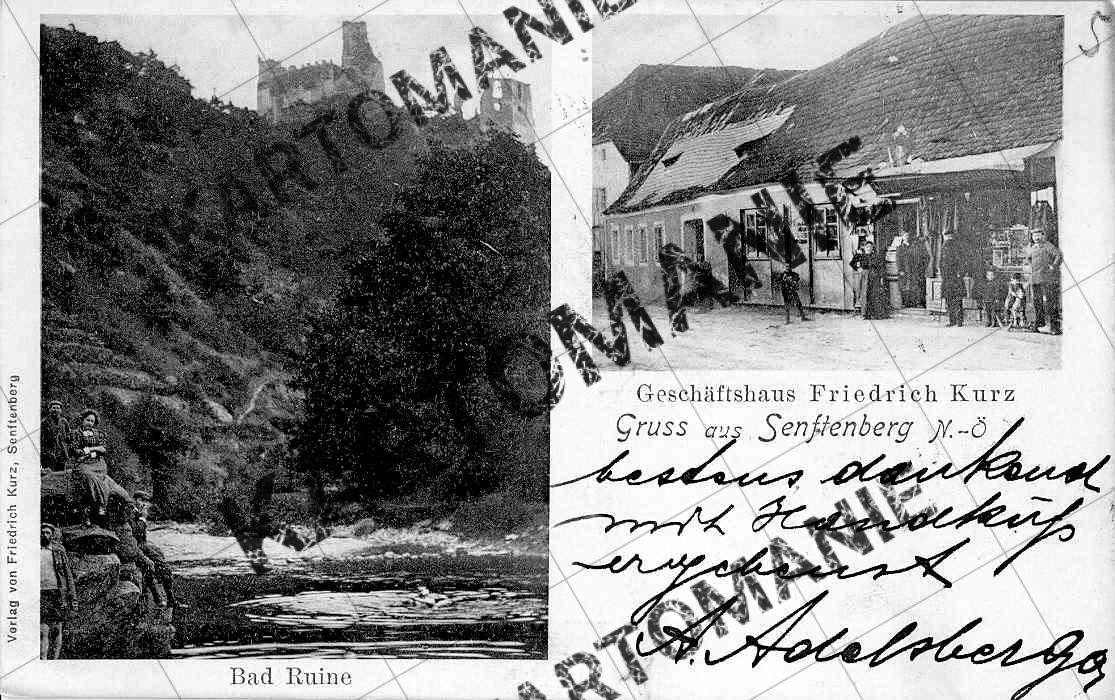 Verlag von Friedrich Kurz, Senftenberg
Bad Ruine
Geschäftshaus Friedrich Kurz
Gruss aus Senftenberg N.-Ö
bestens dankend
mit Handkuß
ergebenst
A. Adelsberger
KARTOMANIE
KARTOMANIE
KARTOMANIE
KARTOMANIE